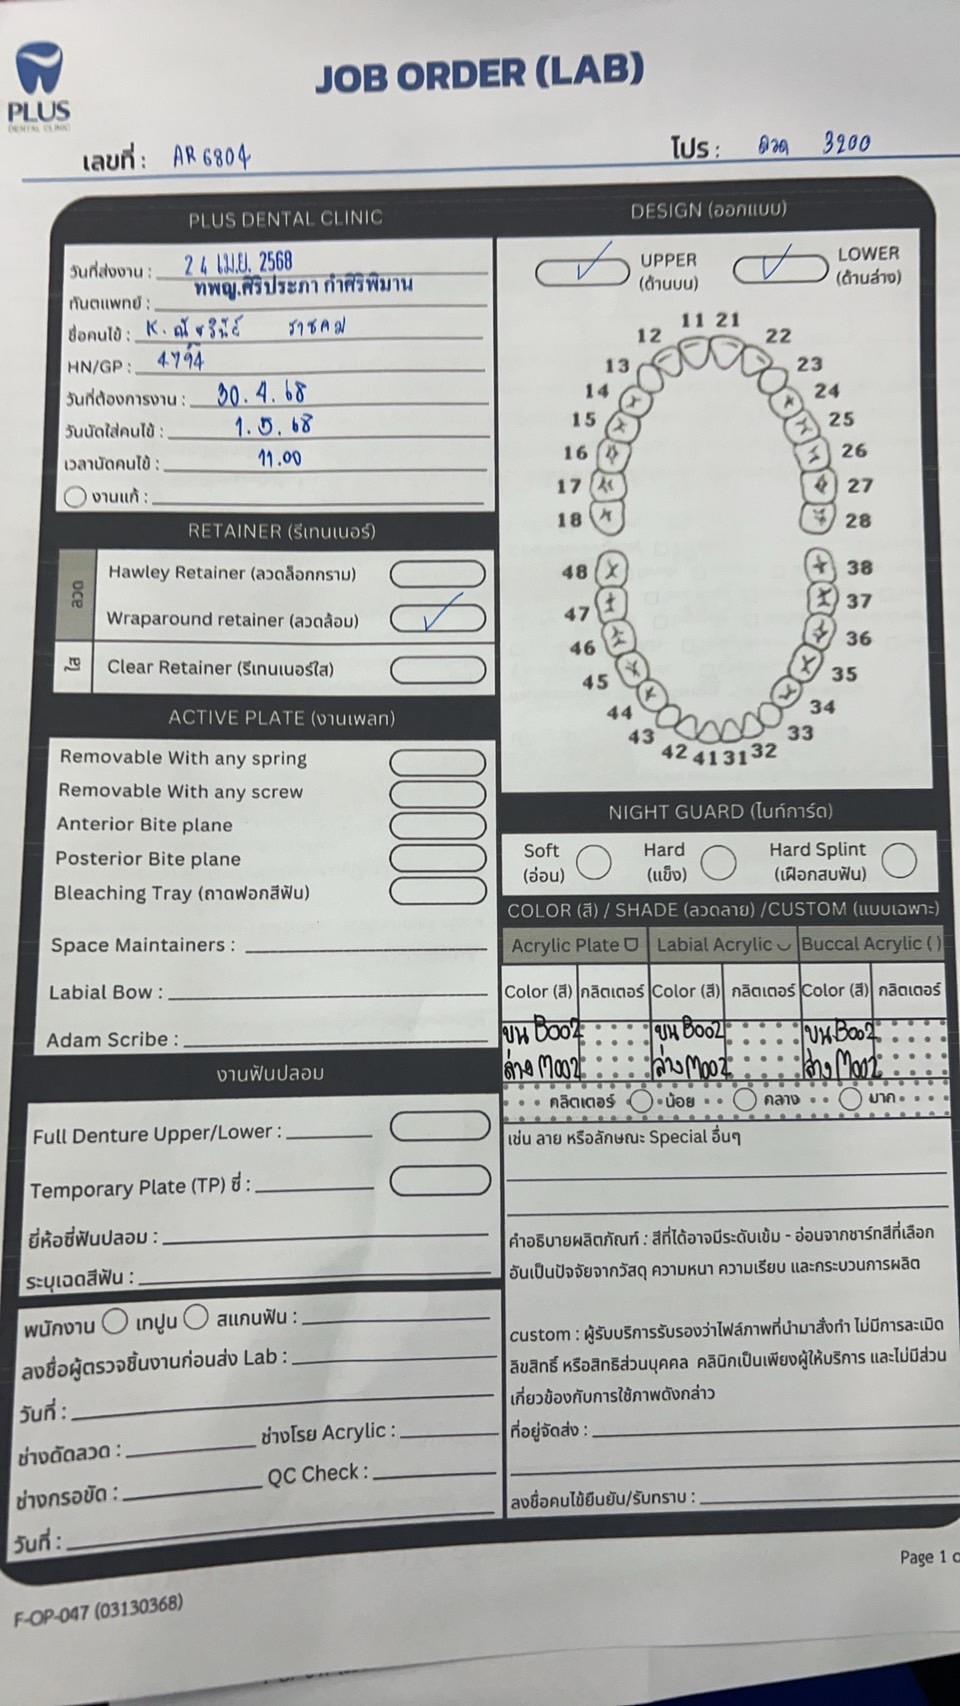 PLUS
DENTAL CLINIC
JOB ORDER (LAB)
เลขที่ : AR 6804
โปร : ลวด 3200
PLUS DENTAL CLINIC
วันที่ส่งงาน : 24 เม.ย. 2568
ทันตแพทย์ : ทพญ.ศิริประภา กำศิริพิมาน
ชื่อคนไข้ : K.
HN/GP : 4794
วันที่ต้องการงาน : 30.4.68
วันนัดใส่คนไข้ : 1.5.68
เวลานัดคนไข้ : 11.00
งานแก้ :
RETAINER (รีเทนเนอร์)
ลวด
Hawley Retainer (ลวดล็อกกราม)
Wraparound retainer (ลวดล้อม)
ใส
Clear Retainer (รีเทนเนอร์ใส)
ACTIVE PLATE (งานเพลท)
Removable With any spring
Removable With any screw
Anterior Bite plane
Posterior Bite plane
Bleaching Tray (ถาดฟอกสีฟัน)
Space Maintainers :
Labial Bow :
Adam Scribe :
งานฟันปลอม
Full Denture Upper/Lower :
Temporary Plate (TP) ซี่ :
ยี่ห้อซี่ฟันปลอม :
ระบุเฉดสีฟัน :
พนักงาน เทปูน สแกนฟัน :
ลงชื่อผู้ตรวจชิ้นงานก่อนส่ง Lab :
วันที่ :
ช่างดัดลวด : ช่างโรย Acrylic :
ช่างกรอขัด : QC Check :
วันที่ :
DESIGN (ออกแบบ)
UPPER
(ด้านบน)
LOWER
(ด้านล่าง)
11 21
12 22
13 23
14 24
15 25
16 26
17 27
18 28
48 38
47 37
46 36
45 35
44 34
43 33
42 41 31 32
NIGHT GUARD (ไนท์การ์ด)
Soft
(อ่อน)
Hard
(แข็ง)
Hard Splint
(เฝือกสบฟัน)
COLOR (สี) / SHADE (ลวดลาย) /CUSTOM (แบบเฉพาะ)
Acrylic Plate Labial Acrylic Buccal Acrylic ( )
Color (สี) กลิตเตอร์ Color (สี) กลิตเตอร์ Color (สี) กลิตเตอร์
บน B002 บน B002 บน B002
ล่าง M002 ล่าง M002 ล่าง M002
กลิตเตอร์ น้อย กลาง มาก
เช่น ลาย หรือลักษณะ Special อื่นๆ
คำอธิบายผลิตภัณฑ์ : สีที่ได้อาจมีระดับเข้ม - อ่อนจากชาร์ทสีที่เลือก
อันเป็นปัจจัยจากวัสดุ ความหนา ความเรียบ และกระบวนการผลิต
custom : ผู้รับบริการรับรองว่าไฟล์ภาพที่นำมาสั่งทำ ไม่มีการละเมิด
ลิขสิทธิ์ หรือสิทธิส่วนบุคคล คลินิกเป็นเพียงผู้ให้บริการ และไม่มีส่วน
เกี่ยวข้องกับการใช้ภาพดังกล่าว
ที่อยู่จัดส่ง :
ลงชื่อคนไข้ยืนยัน/รับทราบ :
Page 1 o
F-OP-047 (03130368)